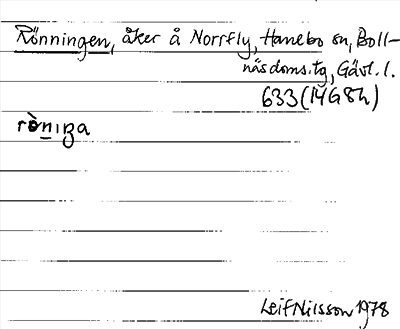 Rönningen, åker å Norrfly, Hanebo sn, Boll-
näs doms.tg, Gävl. l.
633 (14G8h)
rò̱niga
Leif Nilsson 1978